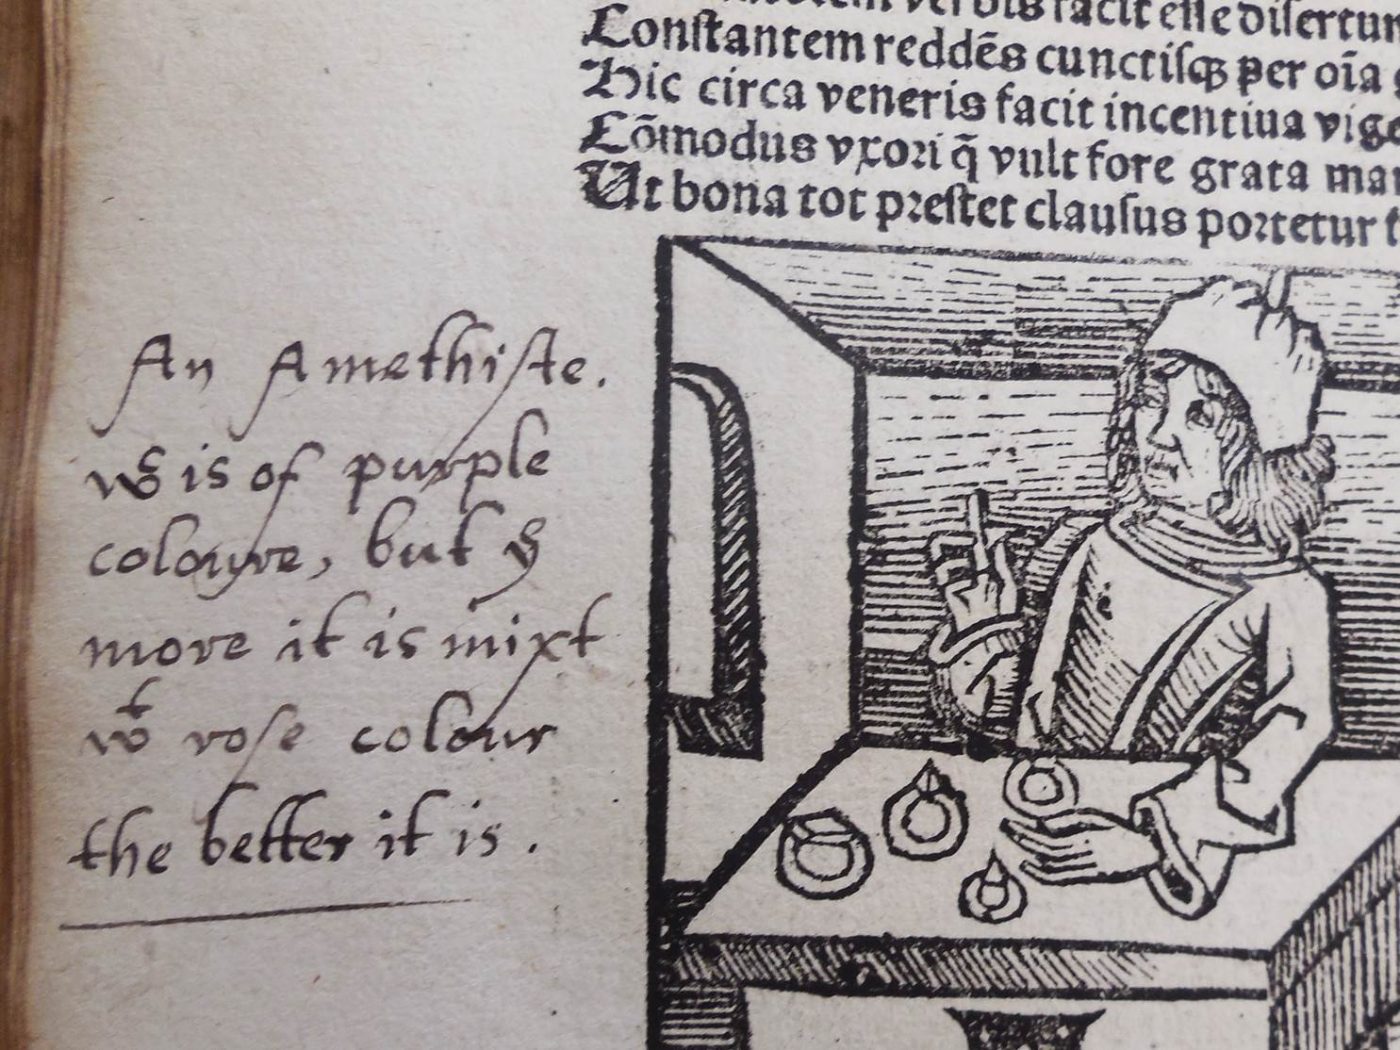 verbis facit esse disertum
Constantem reddēs cunctisqꝫ ꝑ oīa
Hic circa veneris facit incentiua
Cōmodus vxori q̄ vult fore grata
Ut bona tot prestet clausus portetur
An Amethiste.
wᶜʰ is of purple
colowre, but yᵉ
more it is mixt
wᵗ rose colour
the better it is.